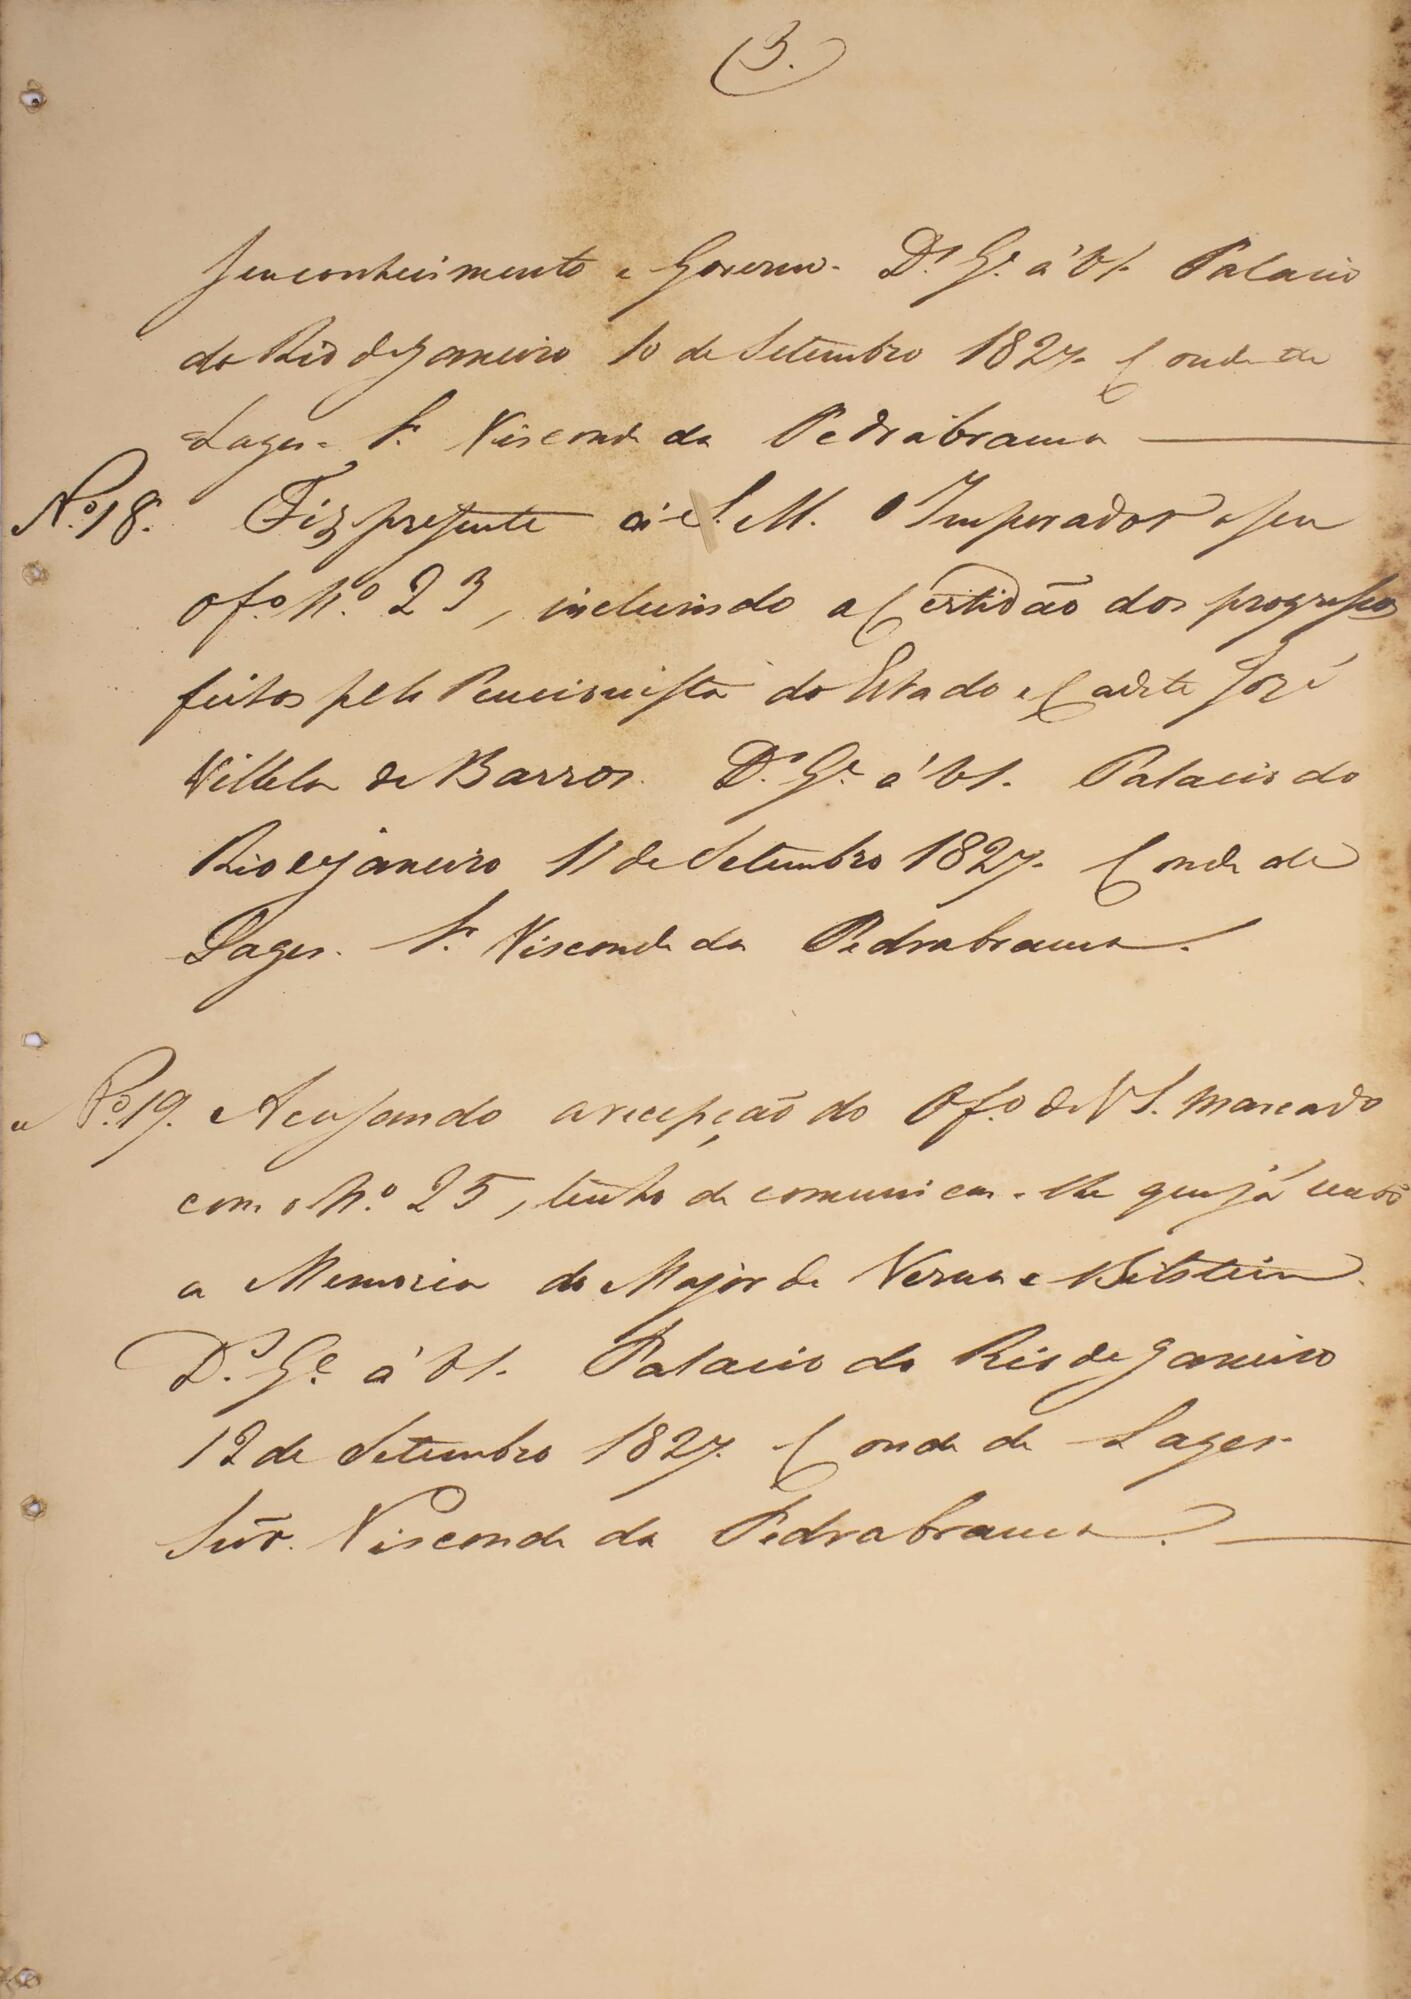 (3.)
seu conhecimento e Governo. D.s G.e a V S. Palacio
do Rio de Janeiro 10 de Setembro 1827. Conde de
Lages. S.r Visconde da Pedrabranca
N.o 18. Fiz presente á S. M. O Imperador o seu
of.o N.o 23, incluindo a Certidão dos progressos
feitos pelo Pencionista do Estado e Cadete José
Villela de Barros. D.s G.e a V S. Palacio do
Rio de Janeiro 11 de Setembro 1827. Conde de
Lages. S.r Visconde da Pedrabranca.
N.o 19. Acusando a recepção do Of.o de V S. marcado
com o N.o 25, tenho de comunicar-lhe que já
a Memoria do Major de
D.s G.e á V S. Palacio do Rio de Janeiro
12 de Setembro 1827. Conde de Lages.
Snr. Visconde da Pedrabranca.